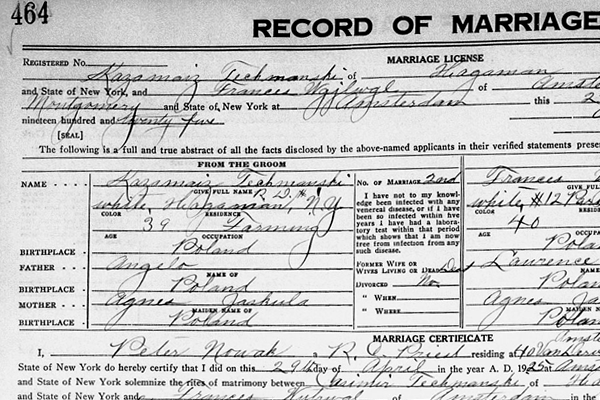 464
RECORD OF MARRIAGE
REGISTERED No. MARRIAGE LICENSE
Kazamaiz Techmanski of Hagaman
and State of New York, and Frances of Amste
Montgomery and State of New York at Amsterdam this 2
nineteen hundred and twenty five
[SEAL]
The following is a full and true abstract of all the facts disclosed by the above-named applicants in their verified statements prese
FROM THE GROOM
NAME Kazamaiz Techmanski
GIVE FULL NAME R. D. #1
white, Hagaman, N.Y
COLOR RESIDENCE
39 Farming
AGE OCCUPATION
BIRTHPLACE Poland
FATHER Angelo
NAME OF
BIRTHPLACE Poland
MOTHER Agnes Jaskula
MAIDEN NAME OF
BIRTHPLACE Poland
No. OF MARRIAGE 2nd
I have not to my knowledge
been infected with any
venereal disease, or if I have
been so infected within five
years I have had a labora-
tory test within that period
which shows that I am now
free from infection from any
such disease.
FORMER WIFE OR
WIVES LIVING OR DEAD Dead
DIVORCED No.
" WHEN
" WHERE
Frances
GIVE FU
white, #12
COLOR RE
40
AGE OC
Pola
Lawrence
NAM
Polan
Agnes Ja
MAIDE
Polan
MARRIAGE CERTIFICATE
Amste
I, Peter Nowak a R. C. Priest residing at 40
State of New York do hereby certify that I did on this 29th day of April in the year A. D. 1925 at Amst
and State of New York solemnize the rites of matrimony between Casimir Techmanski of Ha
and State of New York, and Frances of Amsterdam in the